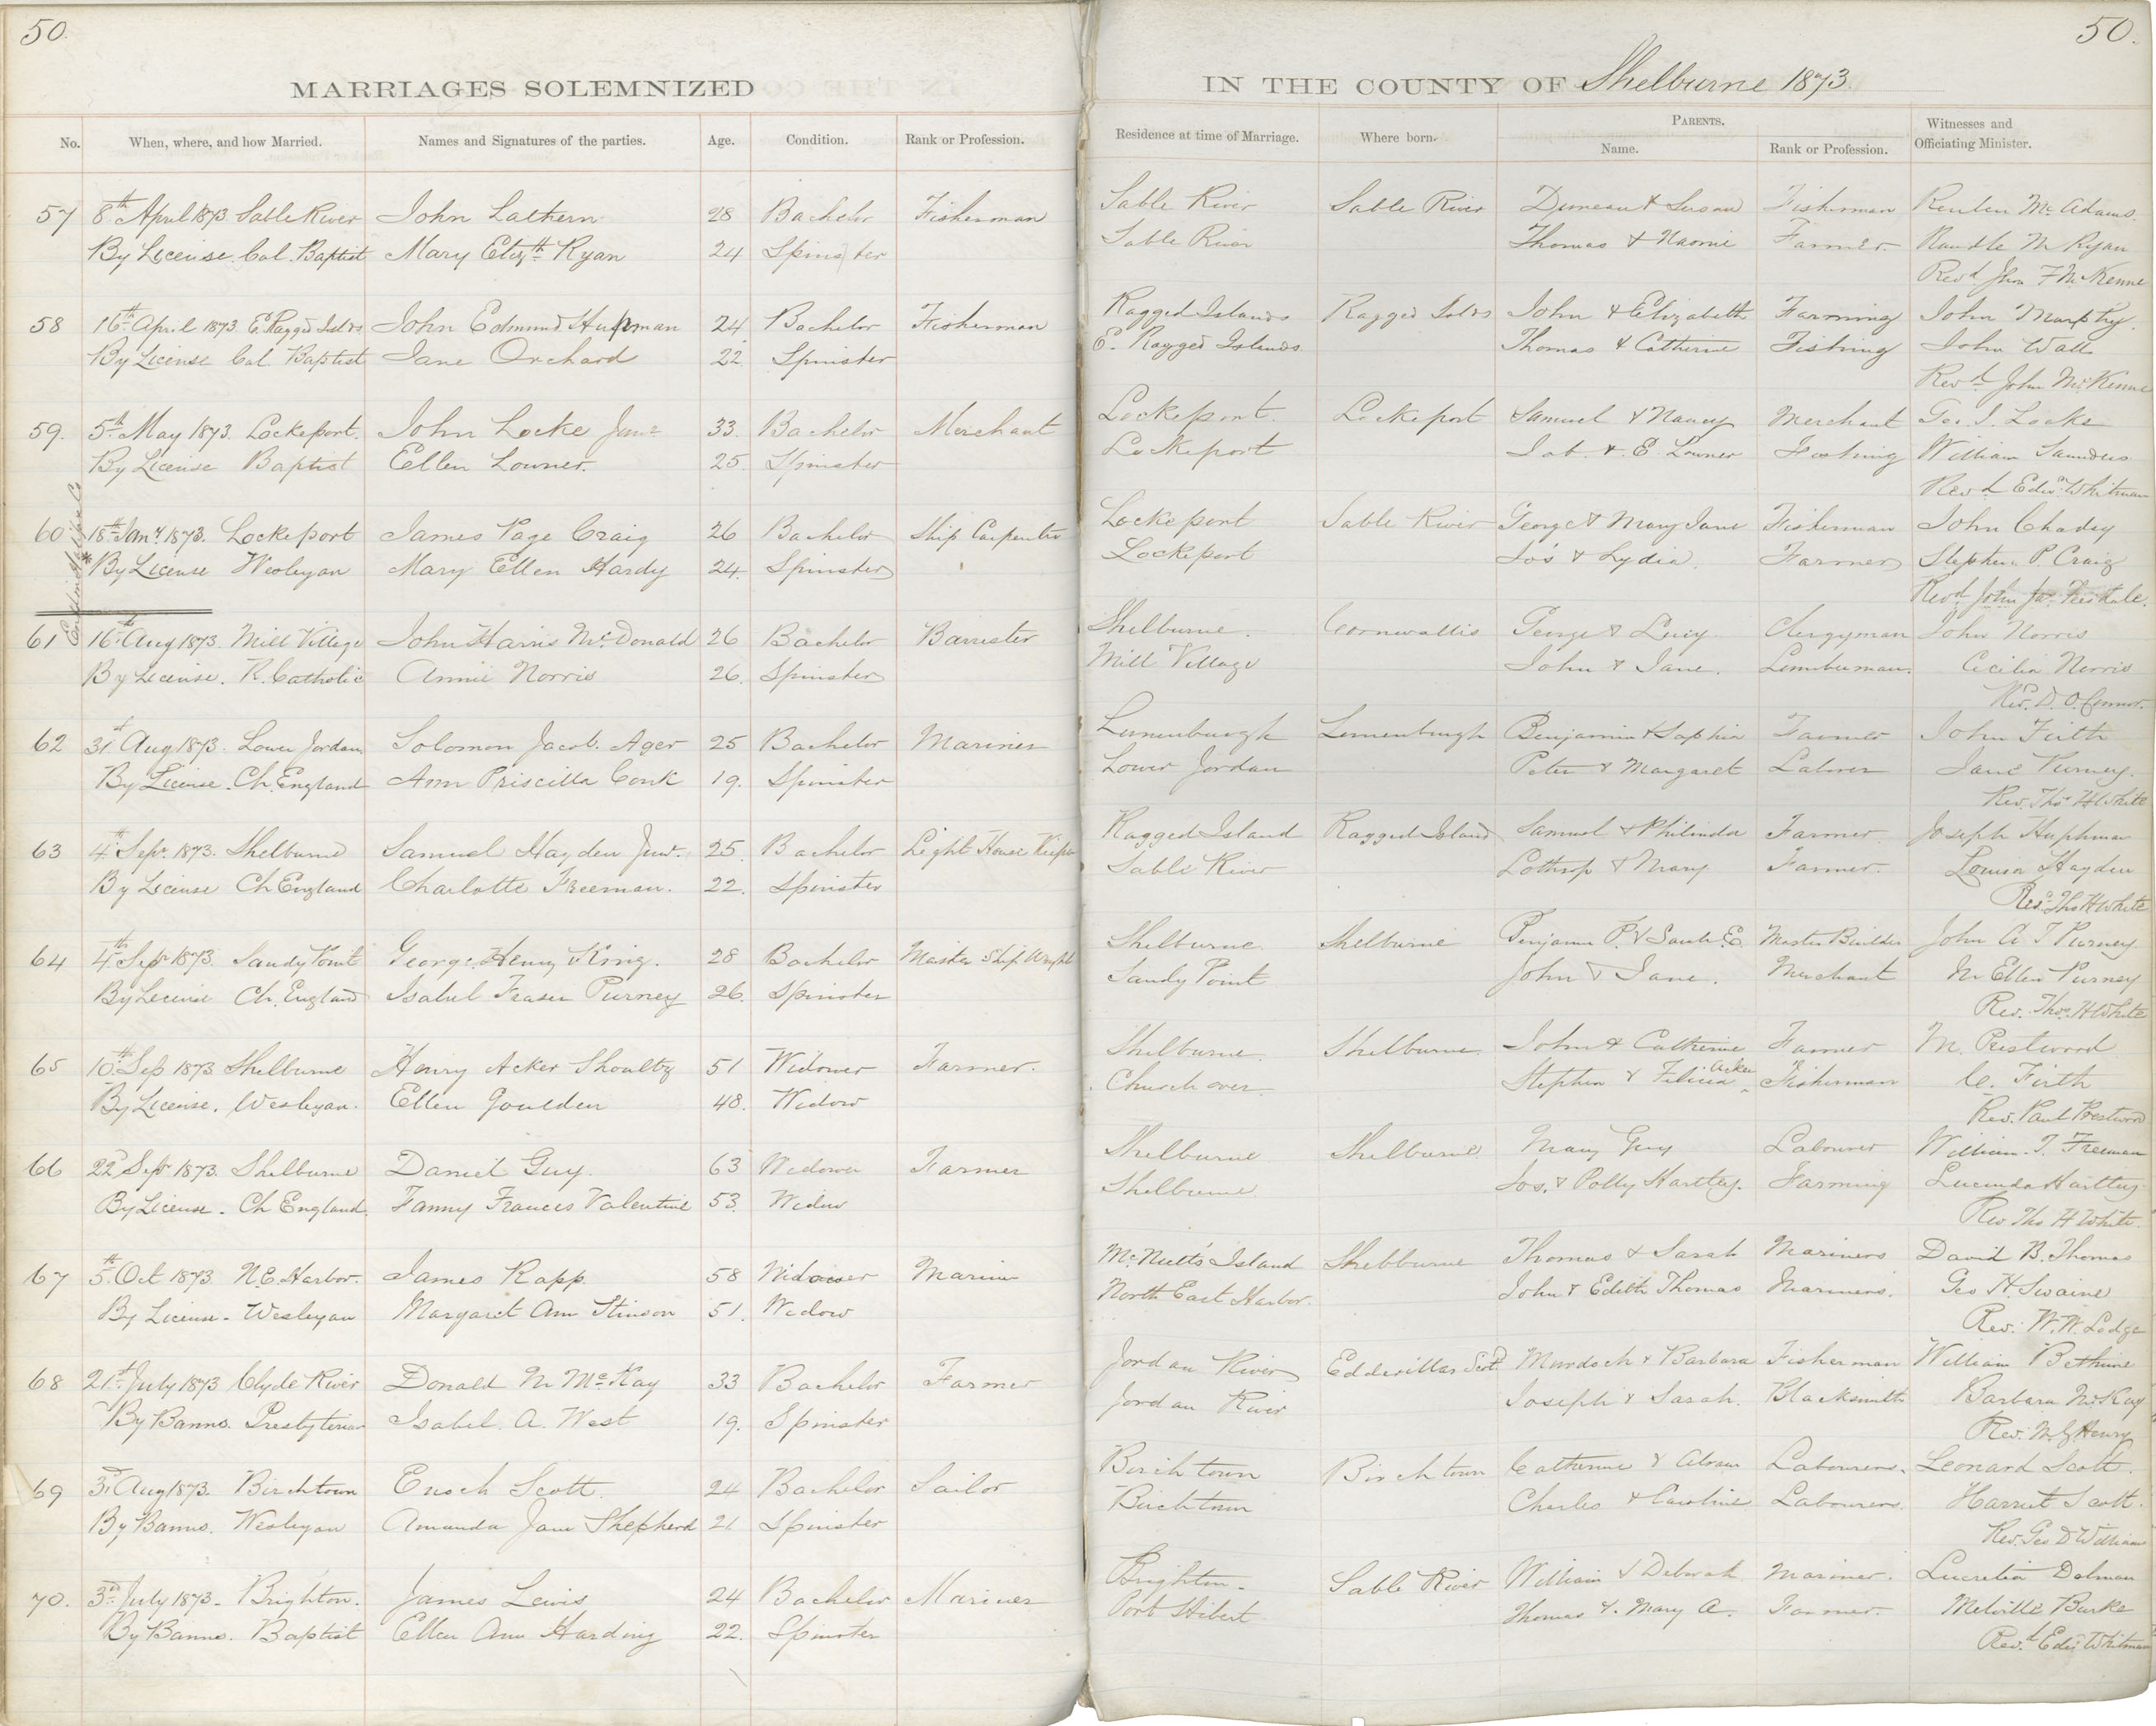 50.
MARRIAGES SOLEMNIZED
No. When, where, and how Married. Names and Signatures of the parties. Age. Condition. Rank or Profession.
57 8th April 1873 Sable River John Lathern 28 Bachelor Fisherman
By License Cal. Baptist Mary Elizth Ryan 24 Spinster
58 16th April 1873 E. Ragged Islds John Edmund Hupman 24 Bachelor Fisherman
By License Cal. Baptist Jane Orchard 22 Spinster
59. 5th May 1873. Lockeport. John Locke Junr 33. Bachelor Merchant
By License Baptist Ellen Lowner. 25. Spinster
60 18th Jany 1873. Lockeport James Page Craig 26 Bachelor Ship Carpenter
* By License Wesleyan Mary Ellen Hardy 24. Spinster
61 16th Aug 1873. Mill Village John Harris McDonald 26 Bachelor Barrister
By License. R. Catholic Annie Norris 26. Spinster
62 31st Aug 1873. Lower Jordan Solomon Jacob Ager 25 Bachelor Mariner
By License. Ch. England Ann Priscilla Conk 19. Spinster
63 4th Sepr. 1873. Shelburne Samuel Hayden Junr. 25. Bachelor Light House Keeper
By License Ch England Charlotte Freeman. 22. Spinster
64 4th Sepr 1873. Sandy Point George Henry King. 28 Bachelor Master Ship Wright
By License Ch. England Isabel Fraser Purney 26. Spinster
65 10th Sep 1873 Shelburne Henry Acker Shoultz 51 Widower Farmer.
By License. Wesleyan. Ellen Goulden 48. Widow
66 22d Sepr 1873. Shelburne Daniel Guy. 63 Widower Farmer
By License. Ch England. Fanny Frances Valentine 53. Widow
67 5th Oct 1873. N.E. Harbor. James Rapp. 58 Widower Mariner
By License. Wesleyan Margaret Ann Stinson 51. Widow
68 21st July 1873 Clyde River Donald M McKay 33 Bachelor Farmer
By Banns. Presbyterian Isabel. A. West 19. Spinster
69 3d Aug 1873. Birchtown Enoch Scott. 24 Bachelor Sailor
By Banns. Wesleyan Amanda Jane Shepherd 21 Spinster
70. 3rd July 1873. Brighton. James Lewis 24 Bachelor Mariner
By Banns. Baptist Ellen Ann Harding 22. Spinster
50.
IN THE COUNTY OF Shelburne 1873.
Residence at time of Marriage. Where born. PARENTS. Name. Rank or Profession. Witnesses and Officiating Minister.
Sable River Sable River Duncan & Susan Fisherman Reuben McAdams.
Sable River Thomas & Naomi Farmer. Randle M Ryan
Revd Jhon F McKenne
Ragged Islands Ragged Islds John & Elizabeth Farming John Murphy.
E. Ragged Islands Thomas & Catherine Fishing John Wall
Revd John McKenne
Lockeport. Lockeport Samuel & Nancy Merchant Geo. S. Locke
Lockeport Job. & E. Lowner Fishing William Saunders
Revd Edwn Whitman
Lockeport Sable River George & Mary Jane Fisherman Stephen P. Craig
Lockeport Jos & Lydia. Farmer
Revd John
Shelburne. Cornwallis George & Lucy. Clergyman John Norris
Mill Village John & Jane. Lumberman. Cecilia Norris
Rev. D. O. Connor.
Lunenburgh Lunenburgh Benjamin & Sophia Farmer John Firth
Lower Jordan Peter & Margaret Labour Jane Purney.
Rev. Thos H White
Ragged Island Ragged Island Samuel & Philinda Farmer. Joseph Huphman
Sable River Lothrop & Mary Farmer. Louisa Hayden
Rev. Thos H White
Shelburne. Shelburne Benjamin P. & Sarah E. Master Builder John A T Purney
Sandy Point John & Jane. Merchant M Ellen Purney
Rev. Thos. H White
Shelburne. Shelburne John & Catherine Farmer M. Prestwood
Churchover. Stephen & Felicia Acker Fisherman C. Firth
Rev. Paul Prestwood
Shelburne Shelburne Mary Guy Labourer William. T. Freeman
Shelburne Jos. & Polly Hartley. Farming Lucinda Hartley
Rev Tho H White.
McNutt's Island Shelburne Thomas & Sarah Mariners David B. Thomas
North East Harbor. John & Edith Thomas Mariners. Geo H. Swaine
Rev. W. W. Lodge
Jordan River Eddervillas Scotd. Murdoch & Barbara Fisherman William Bethune
Jordan River Joseph & Sarah. Blacksmith Barbara McKay
Rev. M. G Henry
Birchtown Birchtown Catherine & Abram Labourers. Leonard Scott.
Birchtown Charles & Caroline Labourers. Harriet Scott.
Rev. Geo D William
Brighton. Sable River William & Deborah Mariner. Lucretia Dolman
Port Hibert Thomas & Mary A. Farmer. Melville Burke
Revd. Edw Whitman